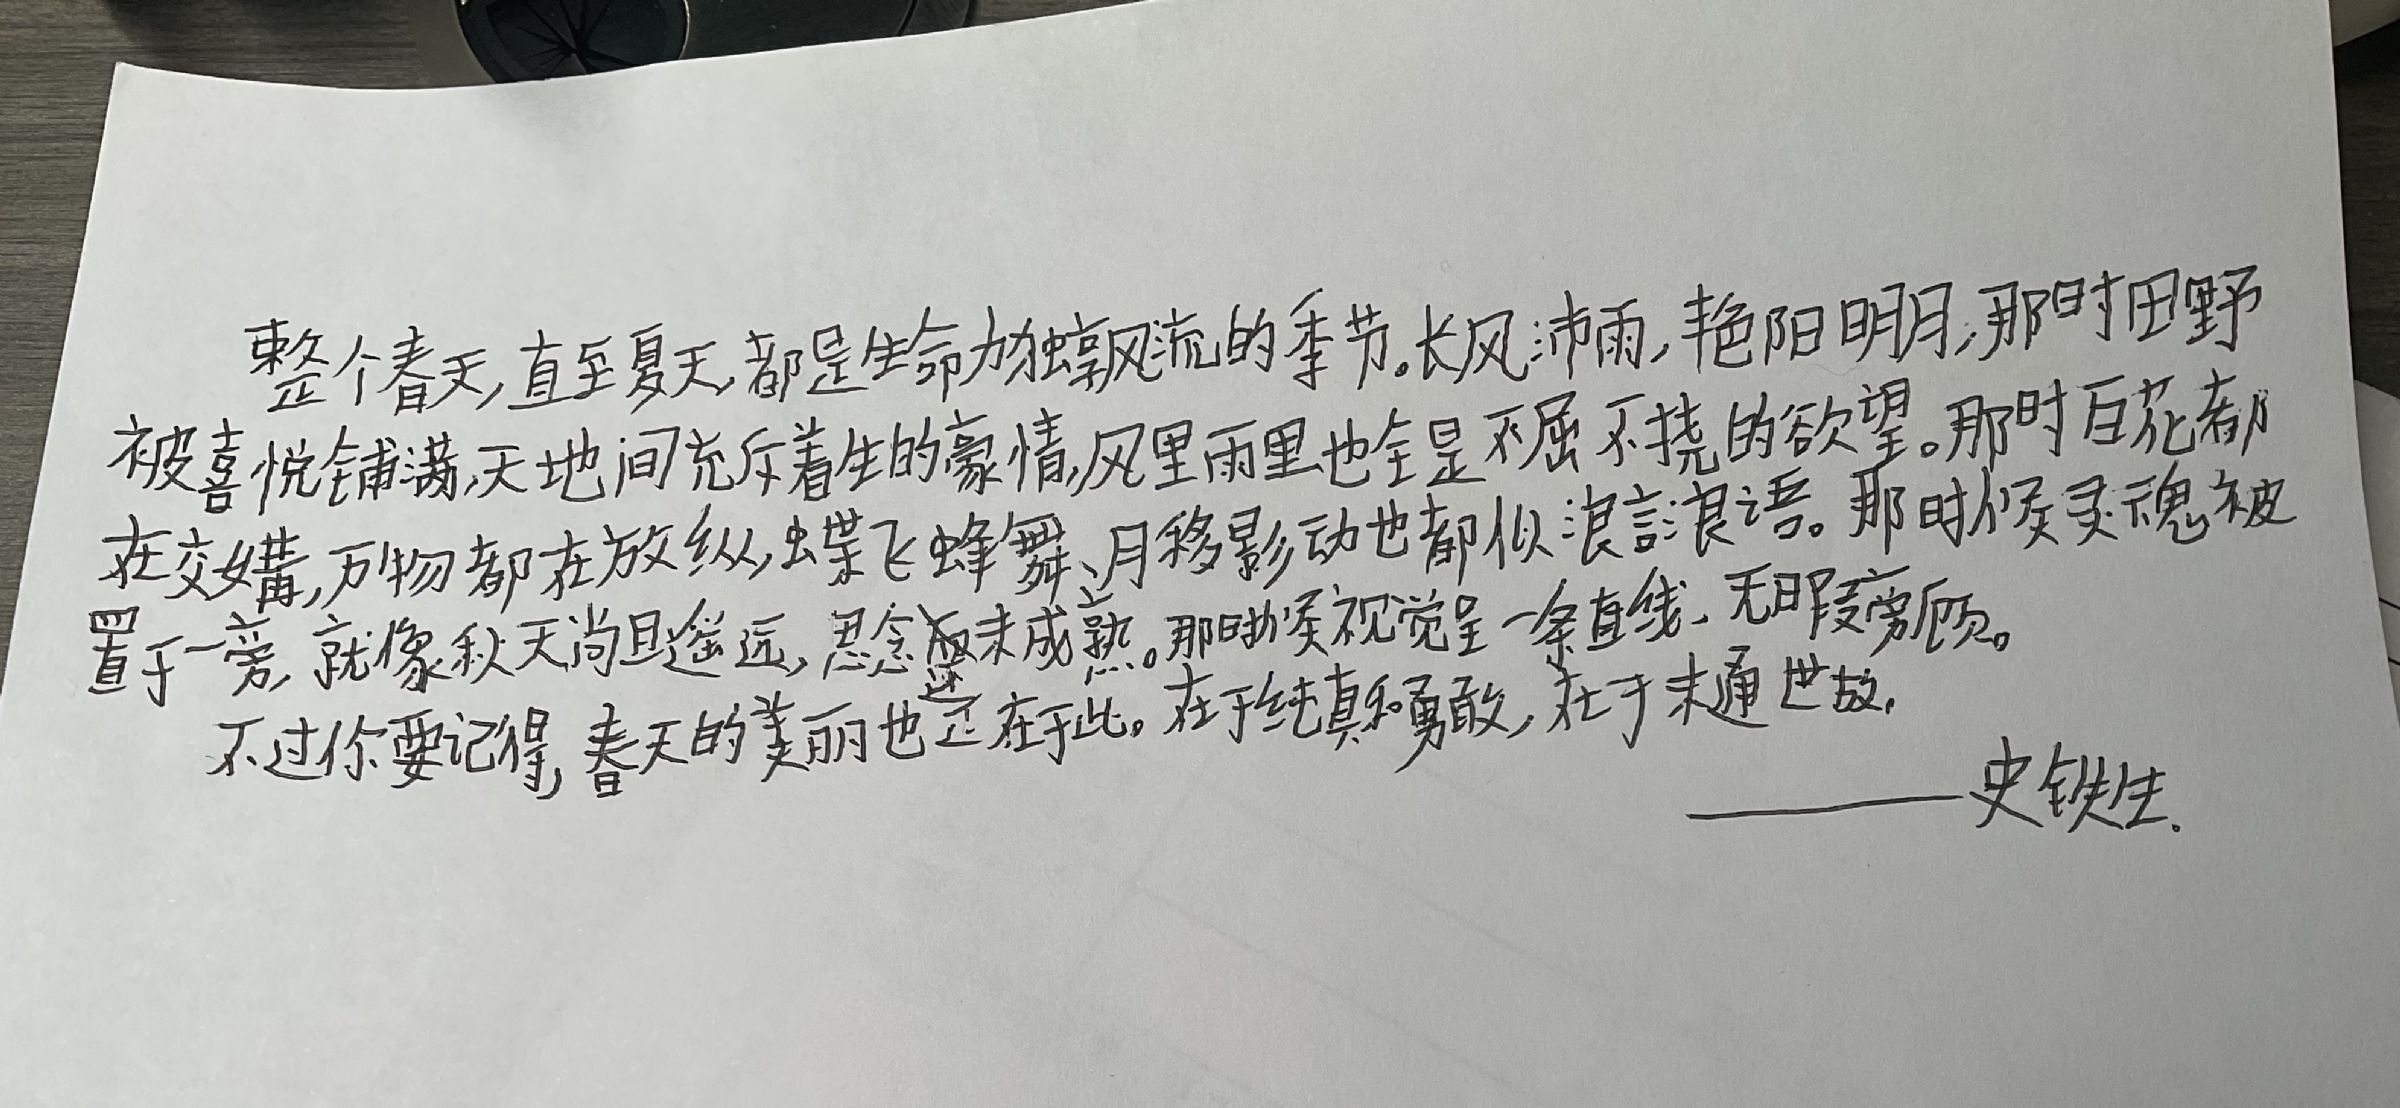 整个春天,直至夏天,都是生命力独领风流的季节。长风沛雨,艳阳明月,那时田野
被喜悦铺满,天地间充斥着生的豪情,风里雨里也全是不屈不挠的欲望。那时百花都
在交媾,万物都在放纵,蝶飞蜂舞、月移影动也都似浪言浪语。那时候灵魂被
置于一旁,就像秋天尚且遥远,思念还未成熟。那时候视觉呈一条直线、无暇旁顾。
不过你要记得,春天的美丽也正在于此。在于纯真和勇敢,在于未通世故.
——史铁生.